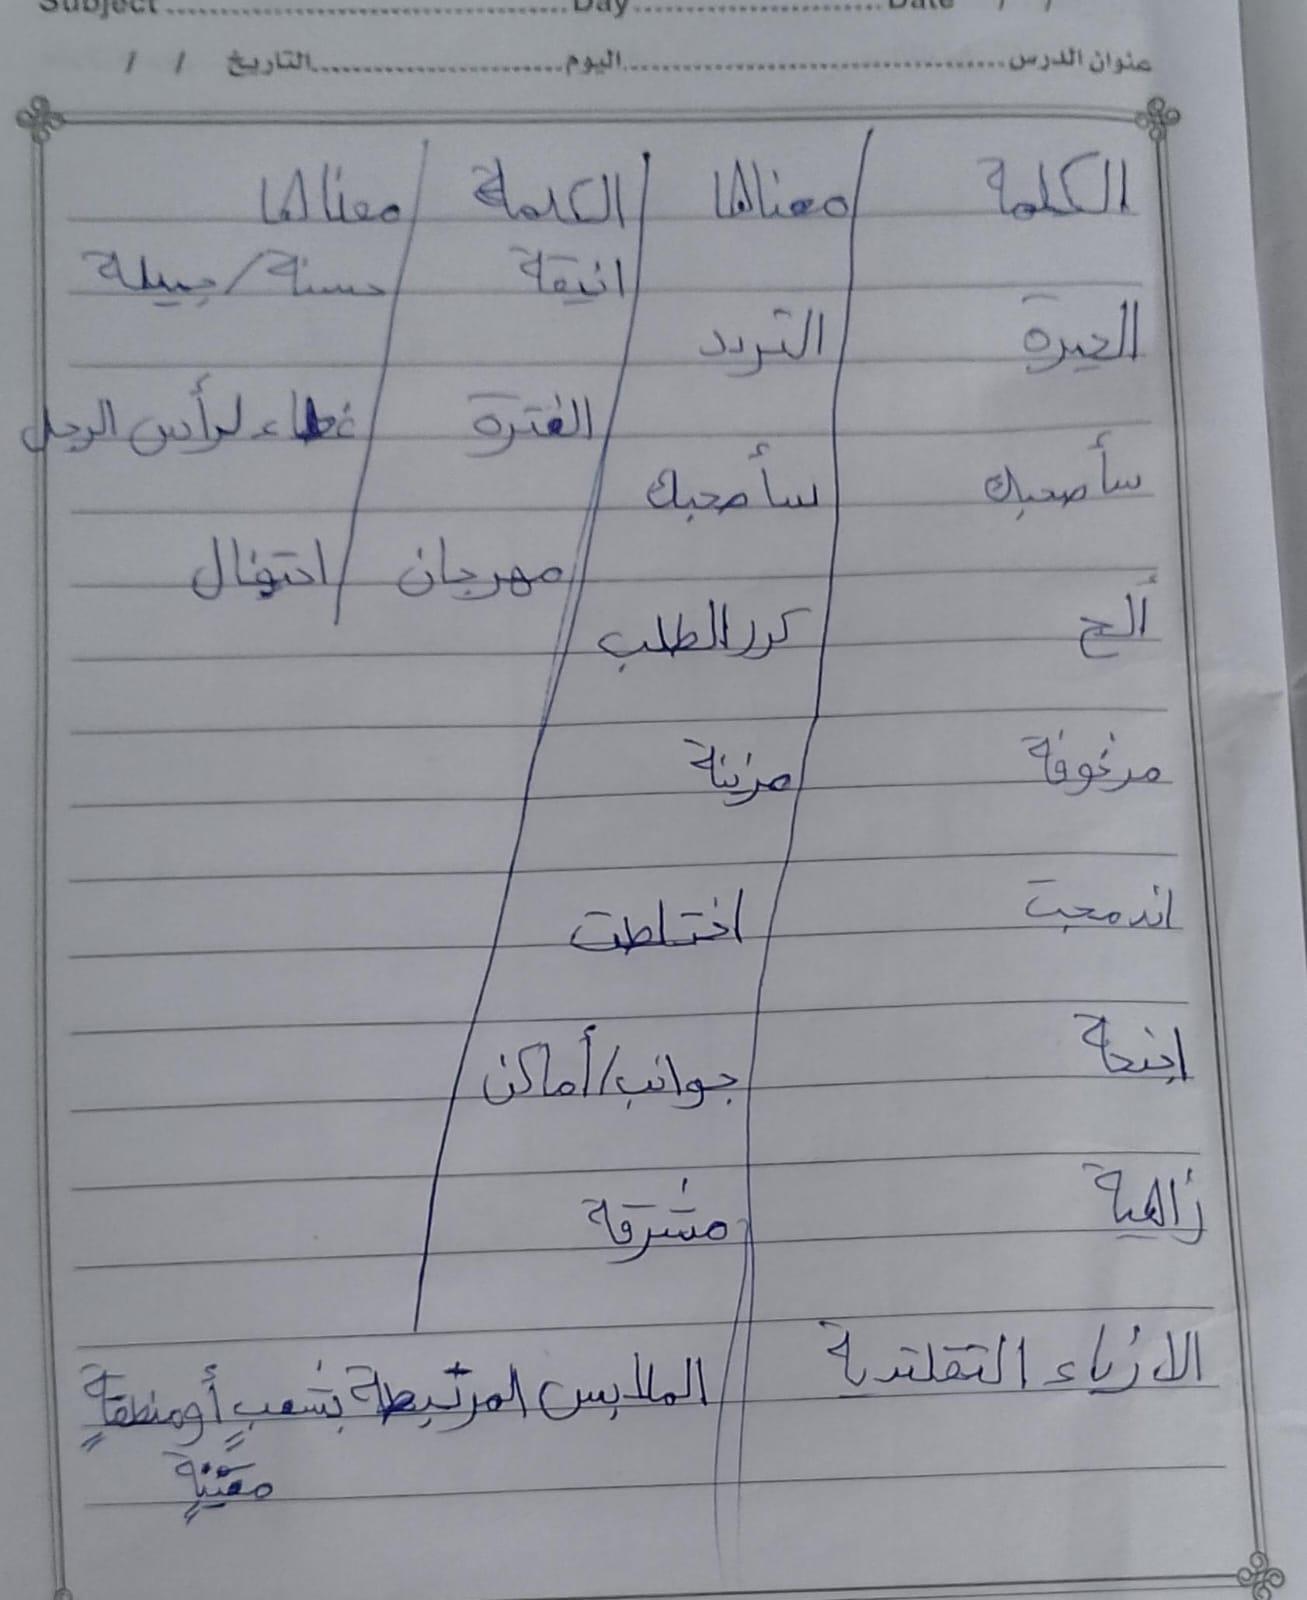 Subject Day Date / /
عنوان الدرس اليوم التاريخ / /
الكلمة معناها الكلمة معناها
انيقة حسنة/جميلة
الحيرة التردد
الغترة غطاء لرأس الرجل
سأصحبك سأصحبك
مهرجان احتفال
ألح كرر الطلب
مرغوفة مزينة
اندمجت اختلطت
اجنحة جوانب/أماكن
زاهية مشرقة
الازياء التقلتدية الملابس المرتبطة بشعبٍ أو منطقةٍ
معينةٍ